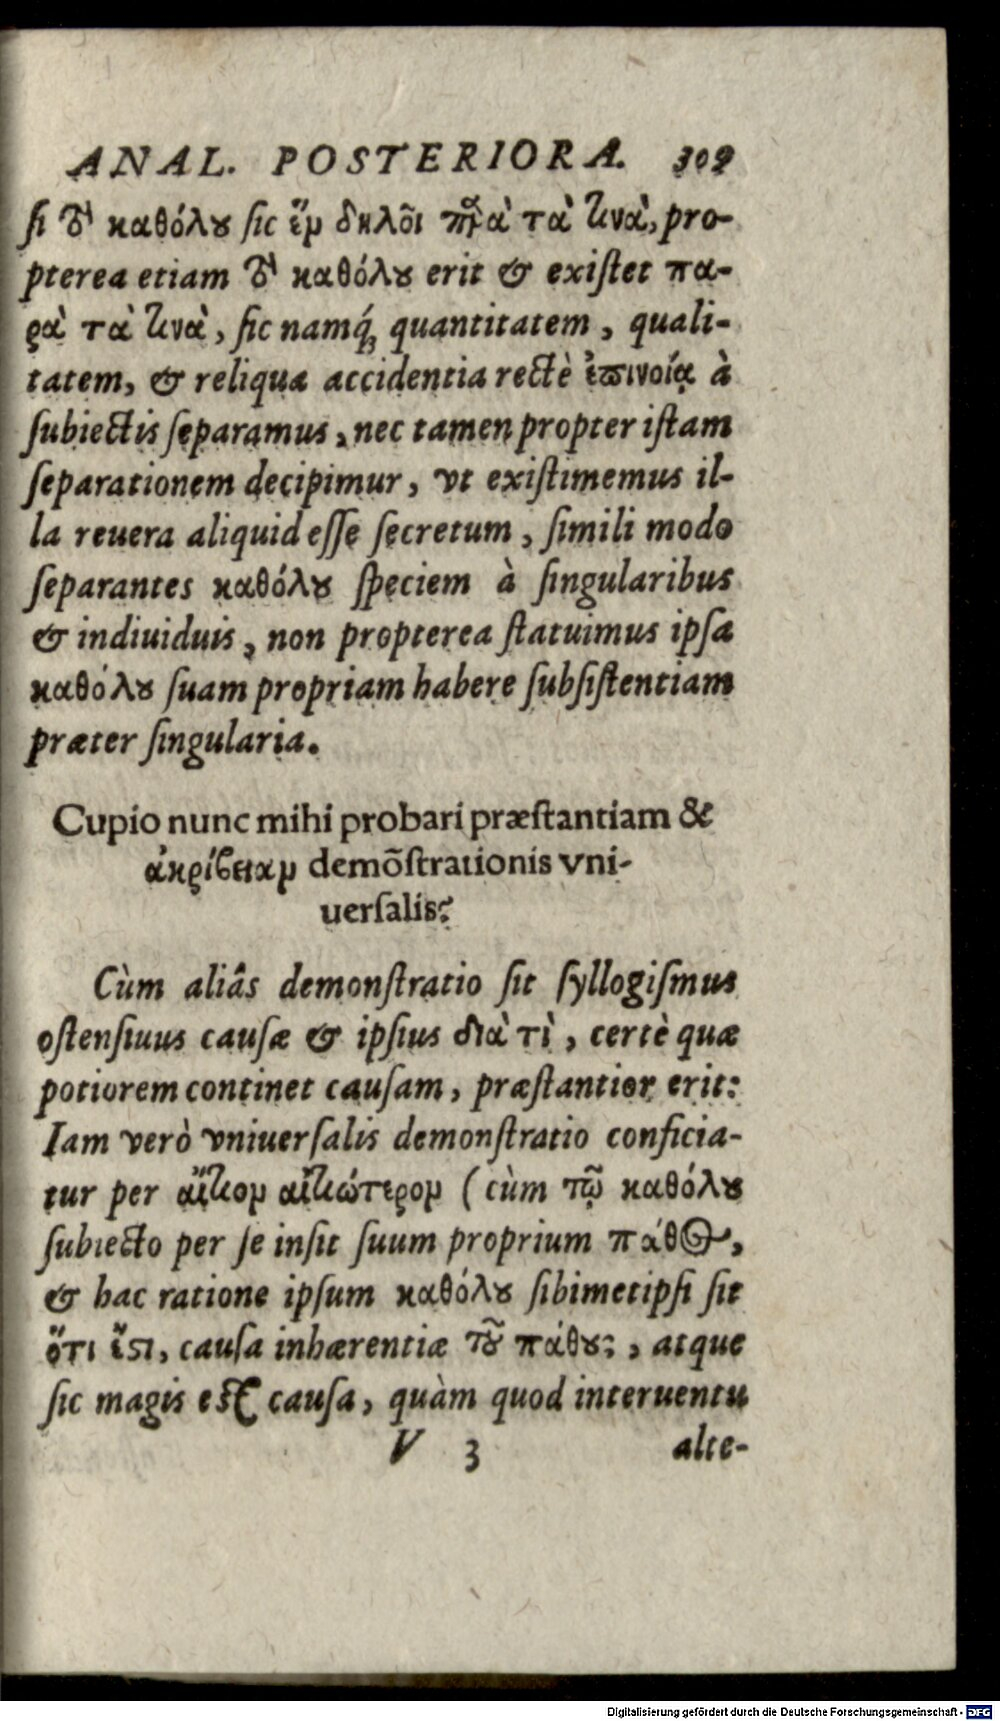 ANAL. POSTERIORA. 309
ſi τὸ καθόλου ſic ἓν δηλοῖ παρὰ τὰ τινὰ, pro-
pterea etiam τὸ καθόλου erit & exiſtet πα-
ρὰ τὰ τινὰ, ſic namq́ꝫ quantitatem, quali-
tatem, & reliqua accidentia rectè ἐπινοίᾳ à
ſubiectis ſeparamus, nec tamen propter iſtam
ſeparationem decipimur, vt exiſtimemus il-
la reuera aliquid eſſe ſecretum, ſimili modo
ſeparantes καθόλου ſpeciem à ſingularibus
& indiuiduis, non propterea ſtatuimus ipſa
καθόλου ſuam propriam habere ſubſiſtentiam
præter ſingularia.
Cupio nunc mihi probari præſtantiam &
ἀκρίβειαν demõſtrationis vni-
uerſalis?
Cùm aliâs demonſtratio ſit ſyllogiſmus
oſtenſiuus cauſæ & ipſius διὰ τὶ, certè quæ
potiorem continet cauſam, præſtantior erit:
Iam verò vniuerſalis demonſtratio conficia-
tur per αἴτιον αἰτιώτερον (cùm τῷ καθόλου
ſubiecto per ſe inſit ſuum proprium πάθος,
& hac ratione ipſum καθόλου ſibimetipſi ſit
ὅτι ἔστι, cauſa inhærentiæ τοῦ πάθους, atque
ſic magis eſt cauſa, quàm quod interuentu
V 3 alte-
Digitalisierung gefördert durch die Deutsche Forschungsgemeinschaft - DFG